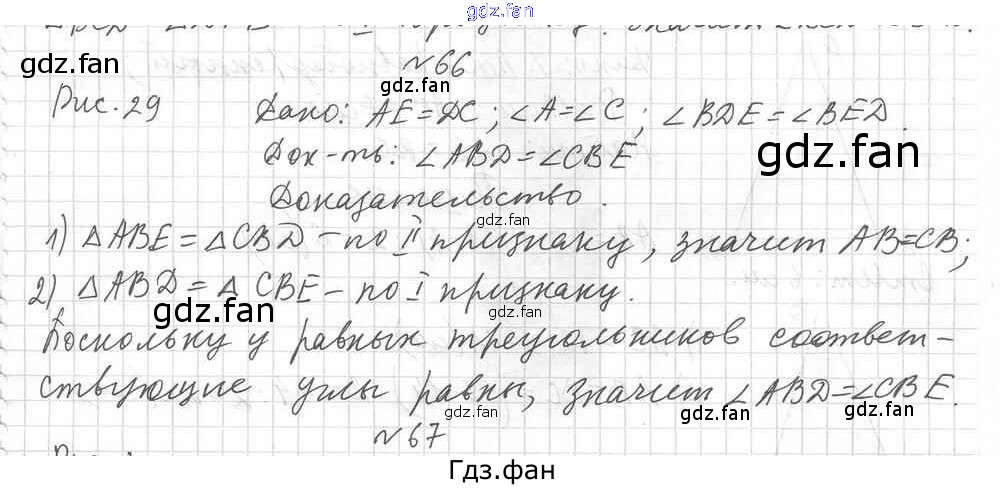 gdz.fan
№66
gdz.fan gdz.fan
Рис. 29 Дано: AE=DC; ∠A=∠C; ∠BDE=∠BED.
gdz.fan
Док-ть: ∠ABD=∠CBE
gdz.fan
Доказательство.
gdz.fan
1) △ABE=△CBD – по II признаку, значит AB=CB;
gdz.fan gdz.fan
2) △ABD=△CBE – по I признаку.
gdz.fan gdz.fan
Поскольку у равных треугольников соответ-
ствующие углы равны, значит ∠ABD=∠CBE.
gdz.fan gdz.fan gdz.fan
№67
Гдз.фан